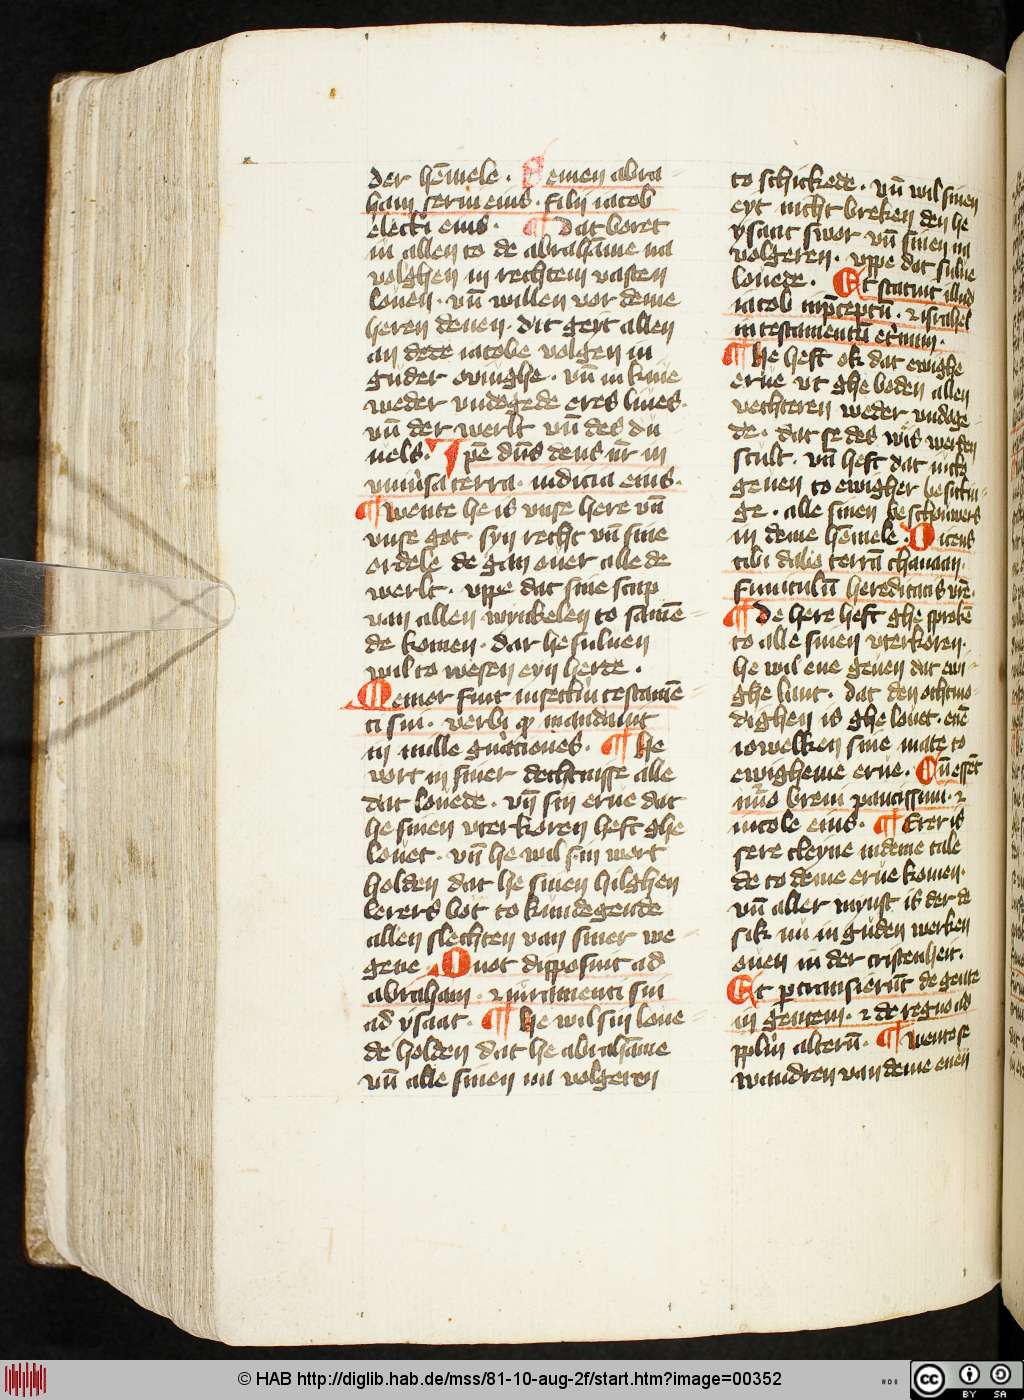 der hēmele · Semen abra
ham serui eius · filij iacob
electi eius · ¶ Dat boret
in allen to de abrahāme na
volghen in rechtem vasten
louen · vn̄ willen vor deme
heren deuen · dit geyt allen
an dede iacobe volgen in
guder ouinghe · vn̄ in knie
weder vndogede eres liues ·
vn̄ der werlt vn̄ des du
uels · Ipē dn̄s deus nr̄ in
vniu̾sa terra · iudicia eius ·
¶ Wente he is vnse here vn̄
vnse got · syn recht vn̄ sine
ordele de gan ouer alle de
werlt · vppe dat sine scap
van allen wrinkelen to samē
de komen · dar he suluen
wil to wesen eyn herde ·
Memor fuit in secl̄m testamē
ti sui · verbi qͥ mandauit
in mille gn̄ationes · ¶ He
wort in siner dechtnisse alle
dat louede · vn̄ sin erue dat
he sinen vterkoren heft ghe
louet · vn̄ he wil sin wort
holden dat he sinen hilghen
lerers bot to kundegende
allen slechten van siner we
gene Quot disposuit ad
abraham · ⁊ iuramenti sui
ad ysaac · ¶ He wil sin loue
de holden dat he abrahāme
vn̄ alle sinen na volgeren
to schickede · vn̄ wil sinen
eyt nicht breken den he
ysaac swor vn̄ sinen na
volgeren · vppe dat sulue
louede · Et statuit illud
iacob in p̄ceptū · ⁊ israhel
in testamentū et̄num ·
¶ He heft ok dat ewighe
erue vt ghe boden allen
vechteren weder vndoge
de · dat se des wis werden
scult · vn̄ heft dat nick
geuen to ewigher besittin
ge · alle sinen beschouwers
in deme hēmele · Dicens
tibi dabo terrā chanaan ·
funiculū hereditatis vr̄e ·
¶ De here heft ghe sprokē
to alle sinen vterkoren ·
he wil eue geuen dat ewi
ghe lant · dat den othmo
dighen is ghe louet · enē
iowelken sine mate to
ewigheme erue · Cū essēt
nūo breui paucissimi · ⁊
incole eius · ¶ Erer is
sere cleyne in deme tale
de to deme erue komen ·
vn̄ aller mynst is der de
sik nu in guden werken
ouen in der cristenheit ·
Et ptransierūt de gente
in gentem · ⁊ de regno ad
pplm̄ alterū · ¶ Wente se
wandren van deme enen
© HAB http://diglib.hab.de/mss/81-10-aug-2f/start.htm?image=00352
cc BY SA